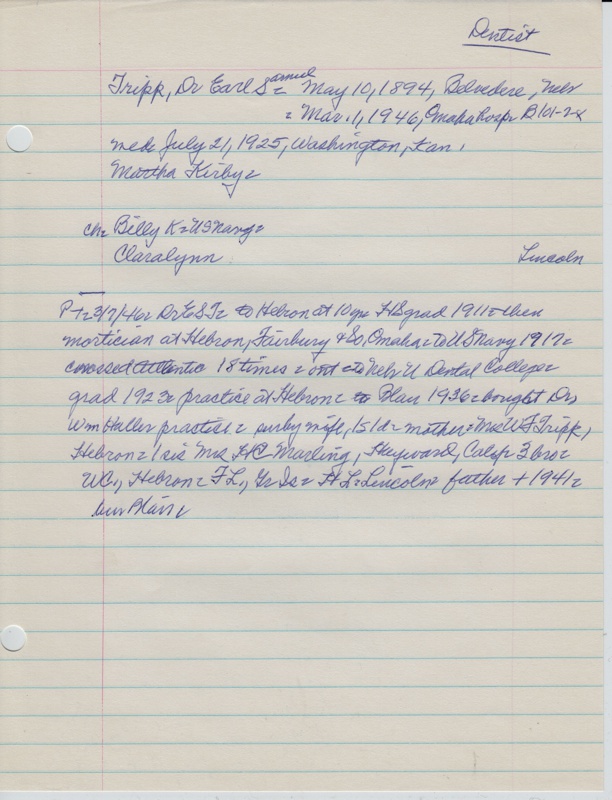 Dentist
Tripp, Dr Earl Samuel = May 10, 1894, Belvedere, Nebr
= Mar. 1, 1946, Omaha Hosp B101-2-x
med= July 21, 1925, Washington, Kan.
Martha Kirby=
ch= Billy K = US Navy=
Claralynn
Lincoln
P T= 3/7/46= Dr E S T= to Hebron at 10 yrs HS grad 1911= then
mortician at Hebron, Fairbury & So, Omaha= to US Navy 1917=
crossed Atlantic 18 times = out = to Nebr U Dental College=
grad 1923= practice at Hebron= to Blair 1936= bought Dr,
Wm Haller practise= surv by wife, 1s 1d= mother= Mrs W F Tripp,
Hebron= 1 sis Mrs H C Marling, Hayward, Calif= 3 bro=
W C., Hebron= F L., Gr Is= H L= Lincoln= father + 1941=
bur Blair=